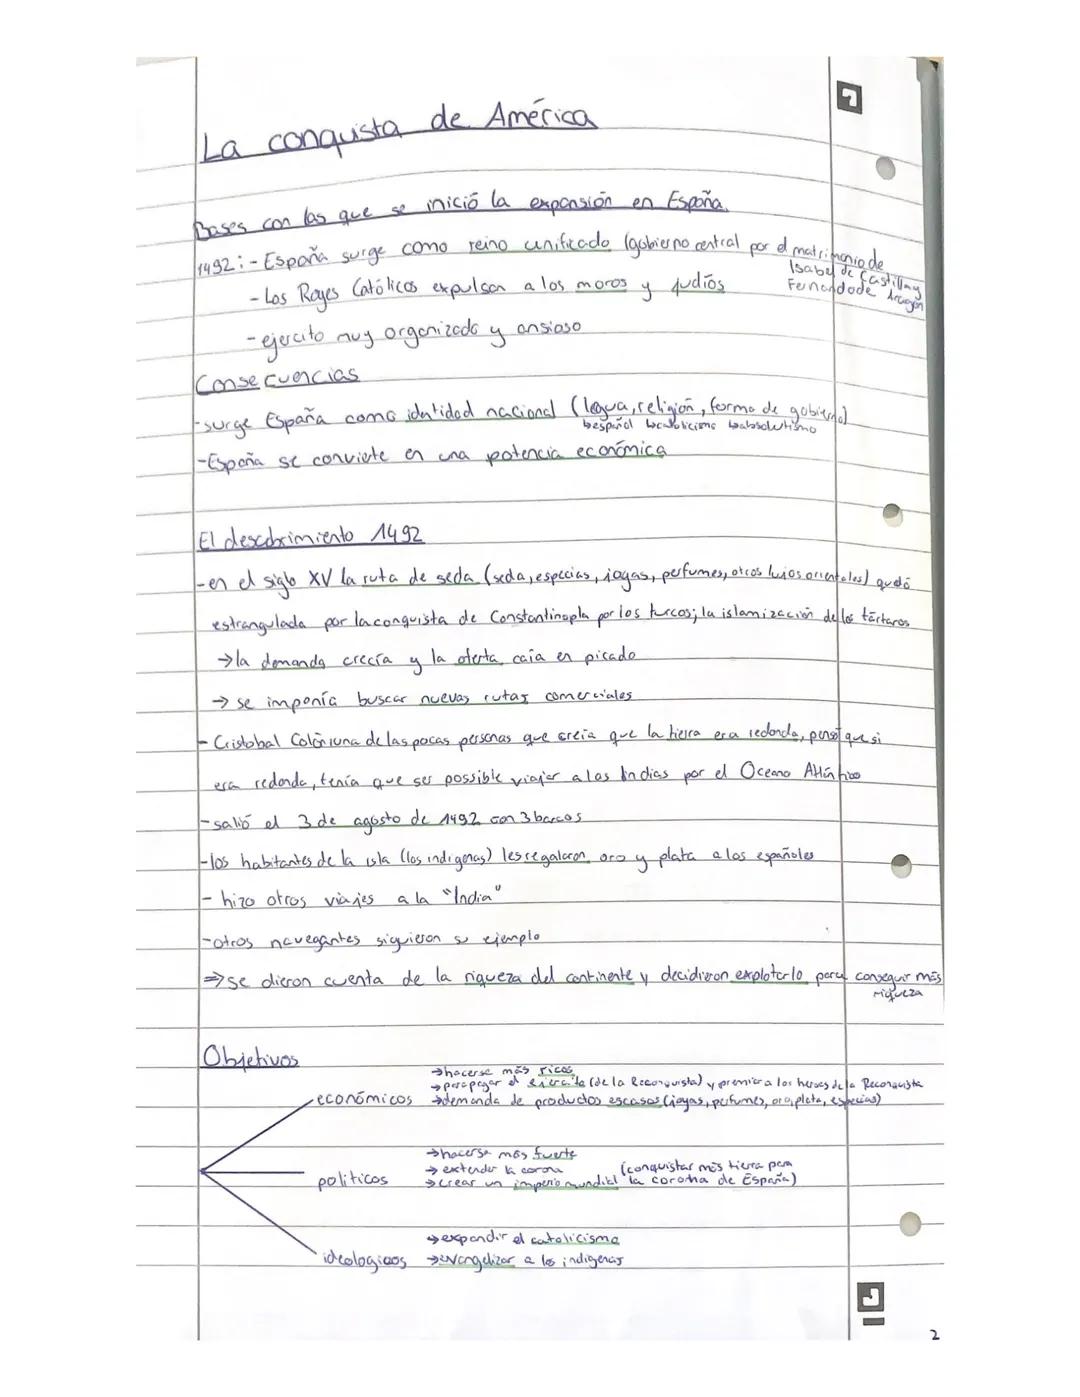 La conquista de América
Bases con las que se inició la expansión en España.
1492: - España surge como reino unificado (gobierno central por el matrimonio de
Isabel de Castilla y
Fernando de Aragón
- Los Reyes Católicos expulsan a los moros y judíos
- ejercito muy organizado y ansioso
Consecuencias
- surge España como identidad nacional (legua, religión, forma de gobierno)
↳español ↳catolicismo ↳absolutismo
- España se conviete en una potencia económica
El descubrimiento 1492
- en el siglo XV la ruta de seda (seda, especias, joyas, perfumes, otros lujos orientales) quedó
estrangulada por la conquista de Constantinopla por los turcos; la islamización de los tártaros
→ la demanda crecía y la oferta caía en picado
→ se imponía buscar nuevas rutas comerciales
- Cristobal Colón: una de las pocas personas que creía que la tierra era redonda, pensó que si
era redonda, tenía que ser possible viajar a las Indias por el Oceano Atlántico
- salió el 3 de agosto de 1492 con 3 barcos
- los habitantes de la isla (los indigenas) les regalaron oro y plata a los españoles
- hizo otros viajes a la "India"
- otros navegantes siguieron su ejemplo
⇒ se dieron cuenta de la riqueza del continente y decidieron explotarlo para conseguir más
riqueza
Objetivos
→ hacerse más ricos
→ para pagar el ejercito (de la Reconquista) y premiar a los heroes de la Reconquista
económicos → demanda de productos escasos (joyas, perfumes, oro, plata, especias)
→ hacerse más fuerte
→ extender la corona (conquistar más tierra para
políticos → crear un imperio mundial la corona de España)
→ expandir el catolicismo
ideologicos → evangelizar a los indigenas
2